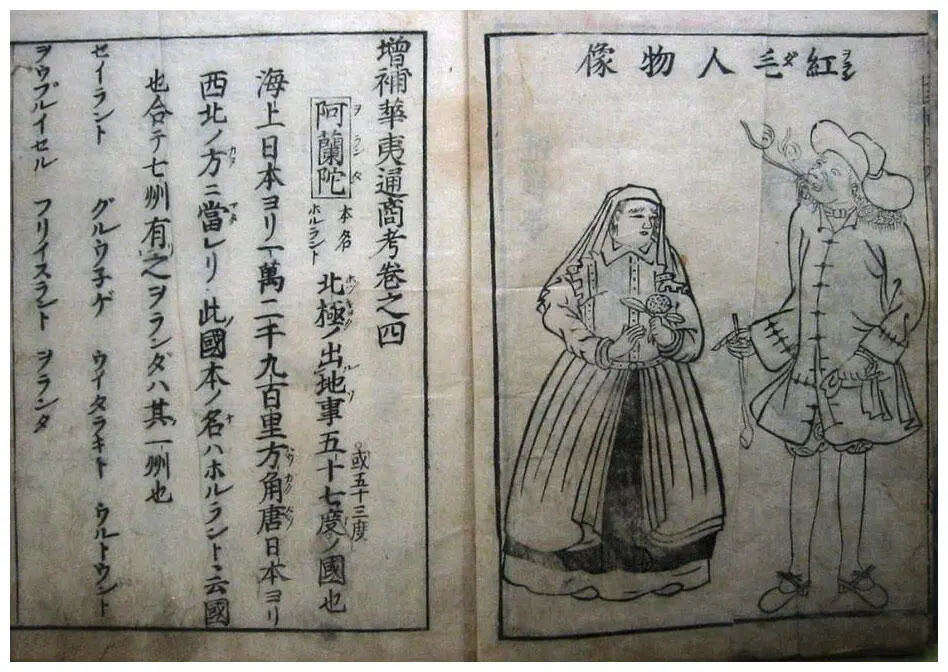 紅毛人物像
增補華夷通商考卷之四
阿蘭陀 本名ホルラント 北極ノ出地事五十七度ノ國也 或五十三度
海上日本ヨリ一萬二千九百里方角唐日本ヨリ
西北ノ方ニ當レリ此國本ノ名ハホルラントヽ云國
也合テ七州有之ヲランダハ其一州也
セイラント グルウ子ゲ ウイタラキト ウルトウント
ヲウブルイセル フリイスラント ヲランタ